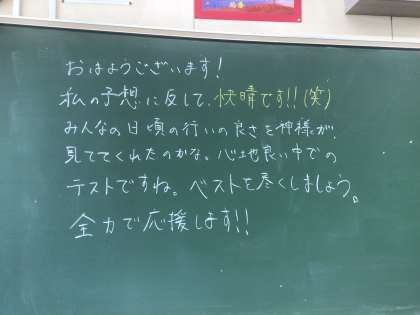 おはようございます!
私の予想に反して、快晴です!!(笑)
みんなの日頃の行いの良さを神様が、
見ててくれたのかな。心地良い中での
テストですね。ベストを尽くしましょう。
全力で応援します!!